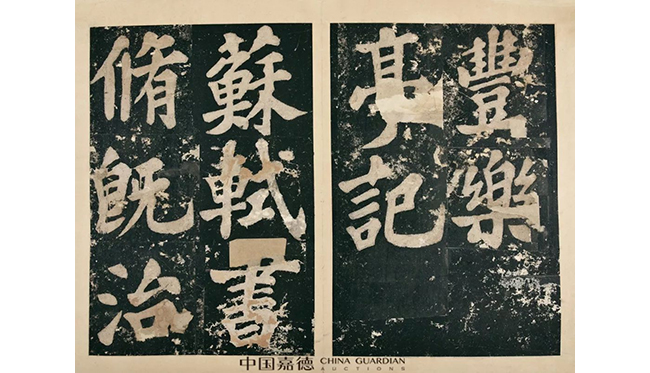 豐樂
亭記
蘇軾書
脩既治
中国嘉德 CHINA GUARDIAN
AUCTIONS